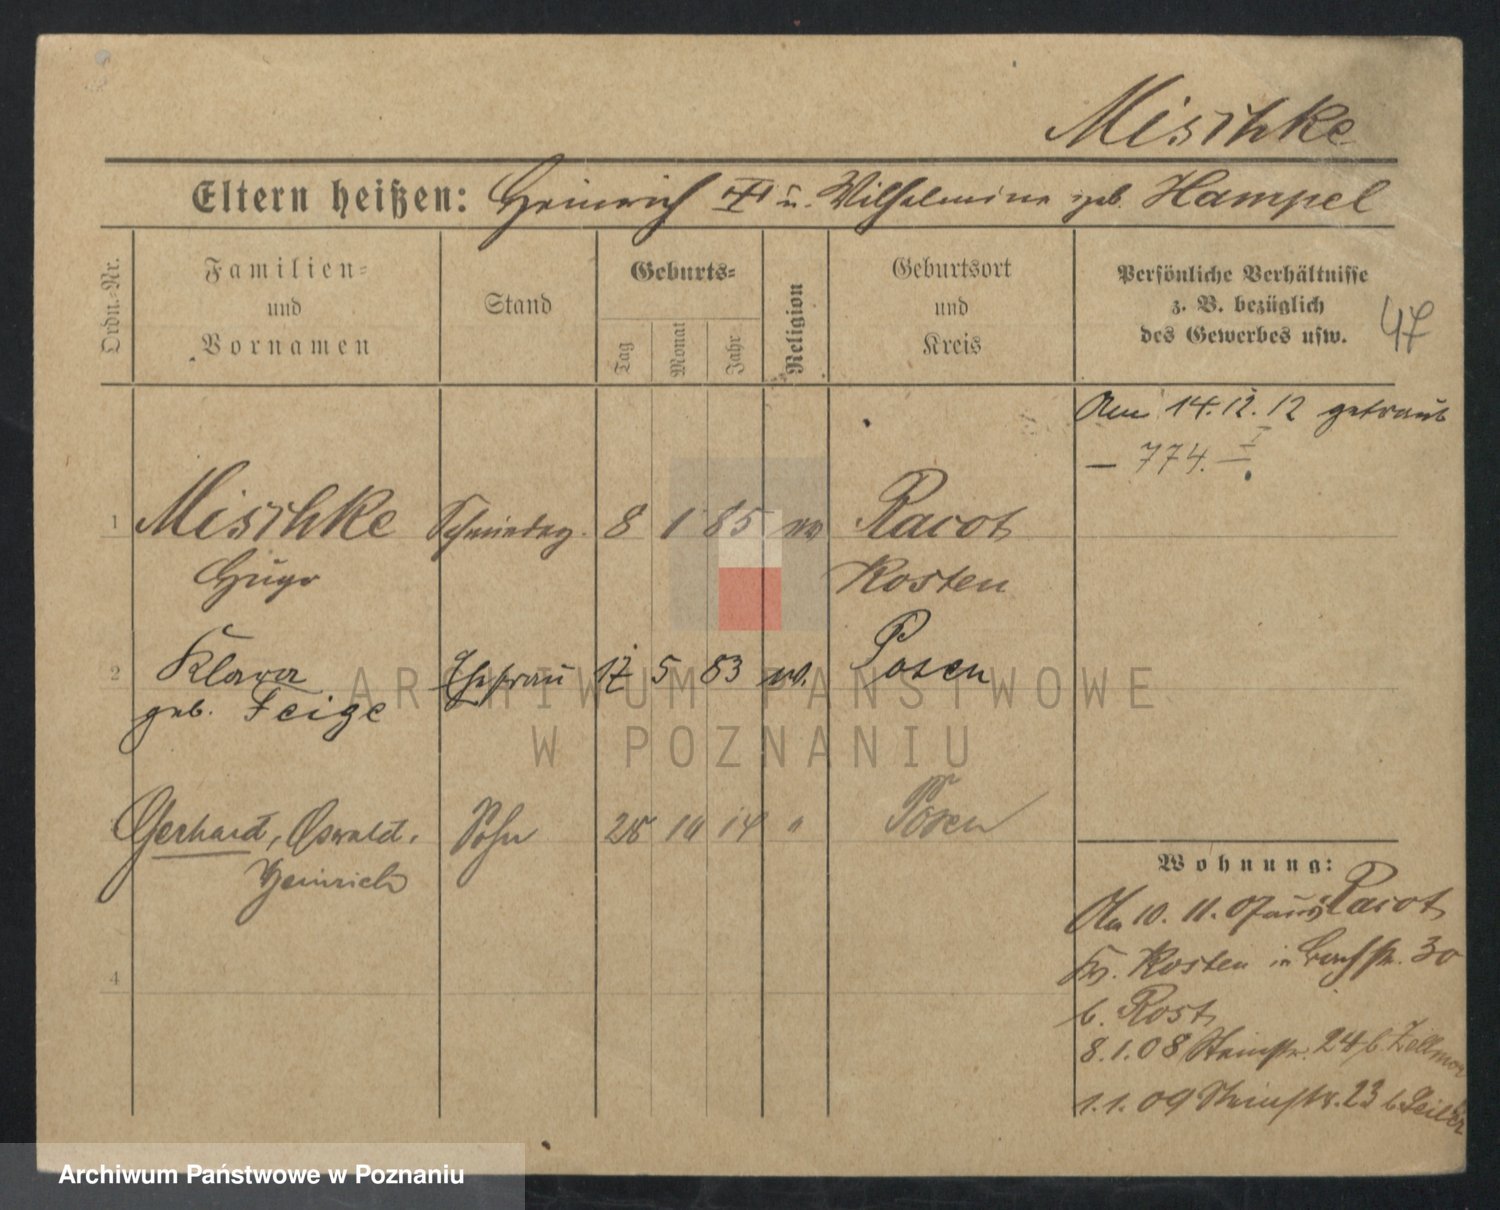 Mischke
Eltern heißen: Heinrich u. Wilhelmine geb. Hampel
Ordn.-Nr.
Familien-
und
Vornamen
Stand
Geburts-
Tag
Monat
Jahr
Religion
Geburtsort
und
Kreis
Persönliche Verhältnisse
z. B. bezüglich
des Gewerbes usw.
47
Am 14.12.12 getraut
— 774. I
1 Mischke 8 1 85 ev Racot
Hugo Kosten
2 Klara Ehefrau 17 5 83 ev. Posen
geb. Feige
Gerhard, Oswald, Sohn 14 " Posen
Heinrich
4
Wohnung:
Am 10. 11. 07 aus Racot
Kr. Kosten in 30
b. Rost
8.1.08 Steinstr. 24 b. Zellmer
1.1.09 Steinstr. 23 b.
ARCHIWUM PAŃSTWOWE
W POZNANIU
Archiwum Państwowe w Poznaniu